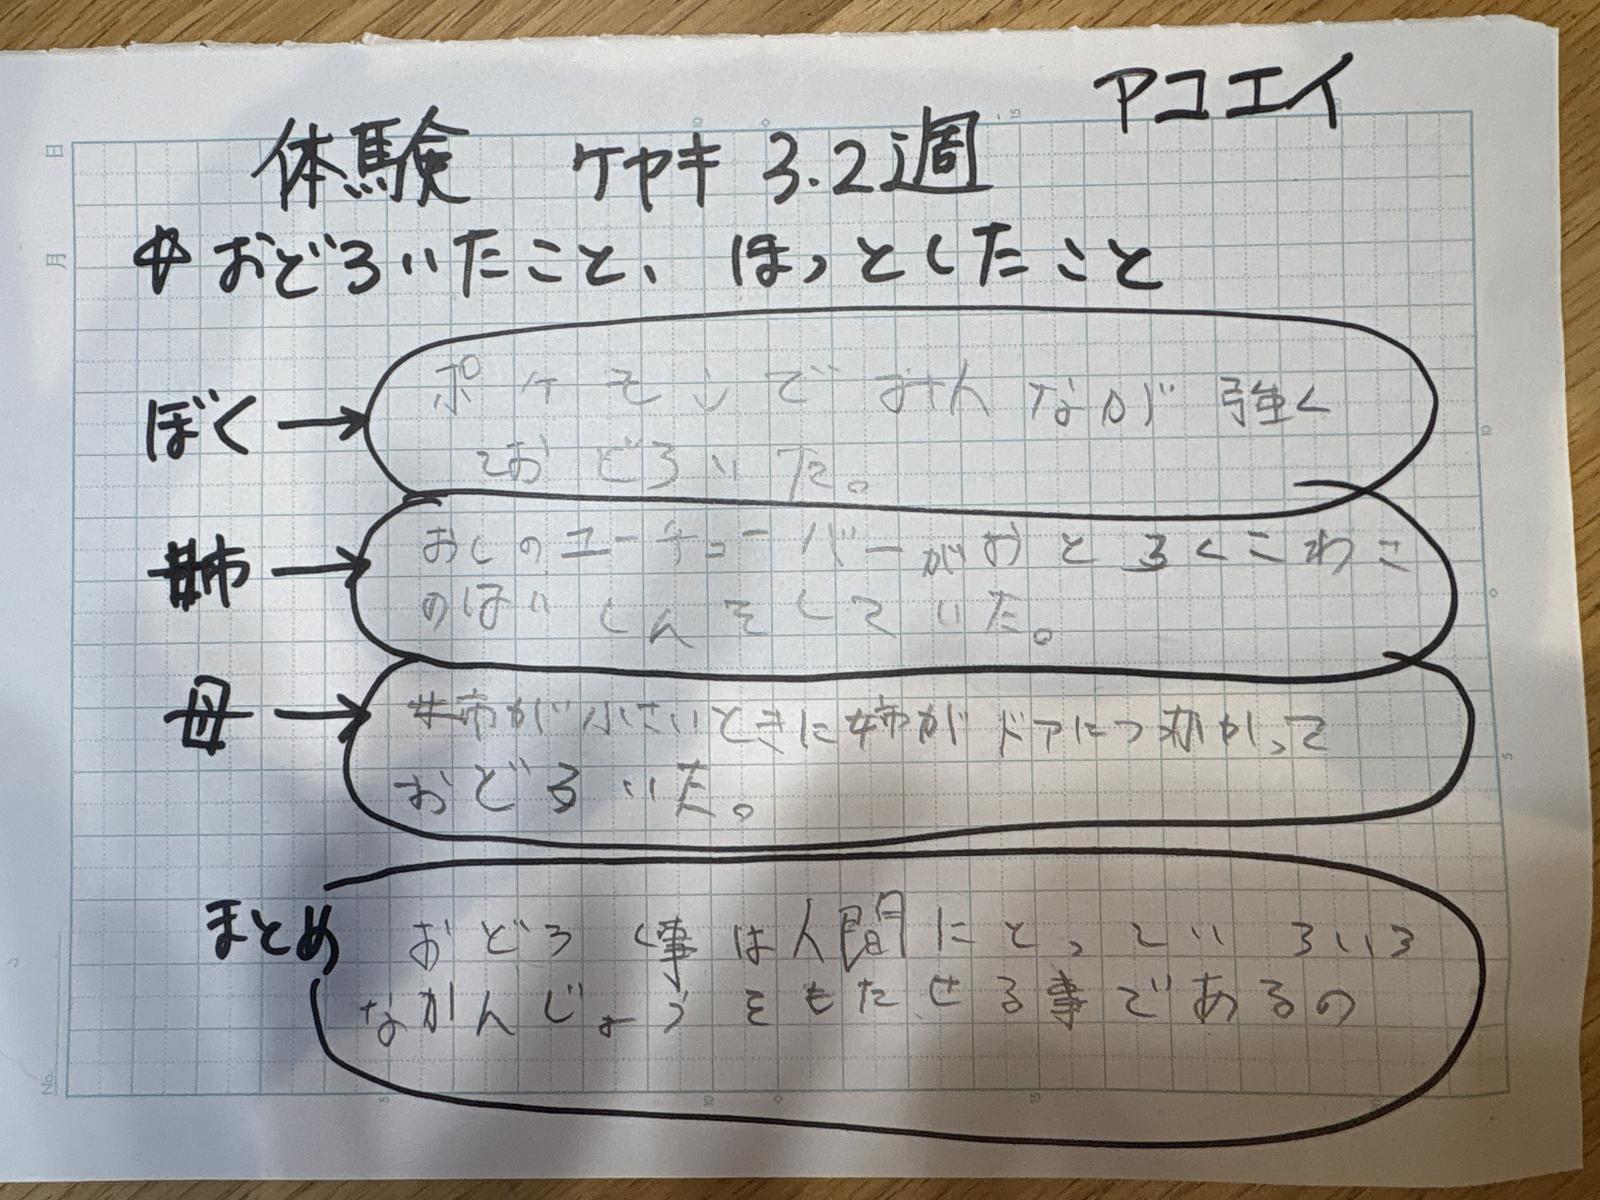 アコエイ
体験 ケヤキ 3.2週
おどろいたこと、ほっとしたこと
ぼく→
ポケモンで みんなが 強く
ておどろいた。
姉→
おしのユーチューバーがおどろくこわこ
のほいくんをしていた。
母→
姉が小さいときに姉がドアにつっかかって
おどろいた。
まとめ
おどろく事は人間にとっていろいろ
なかんじょうをもたせる事であるの